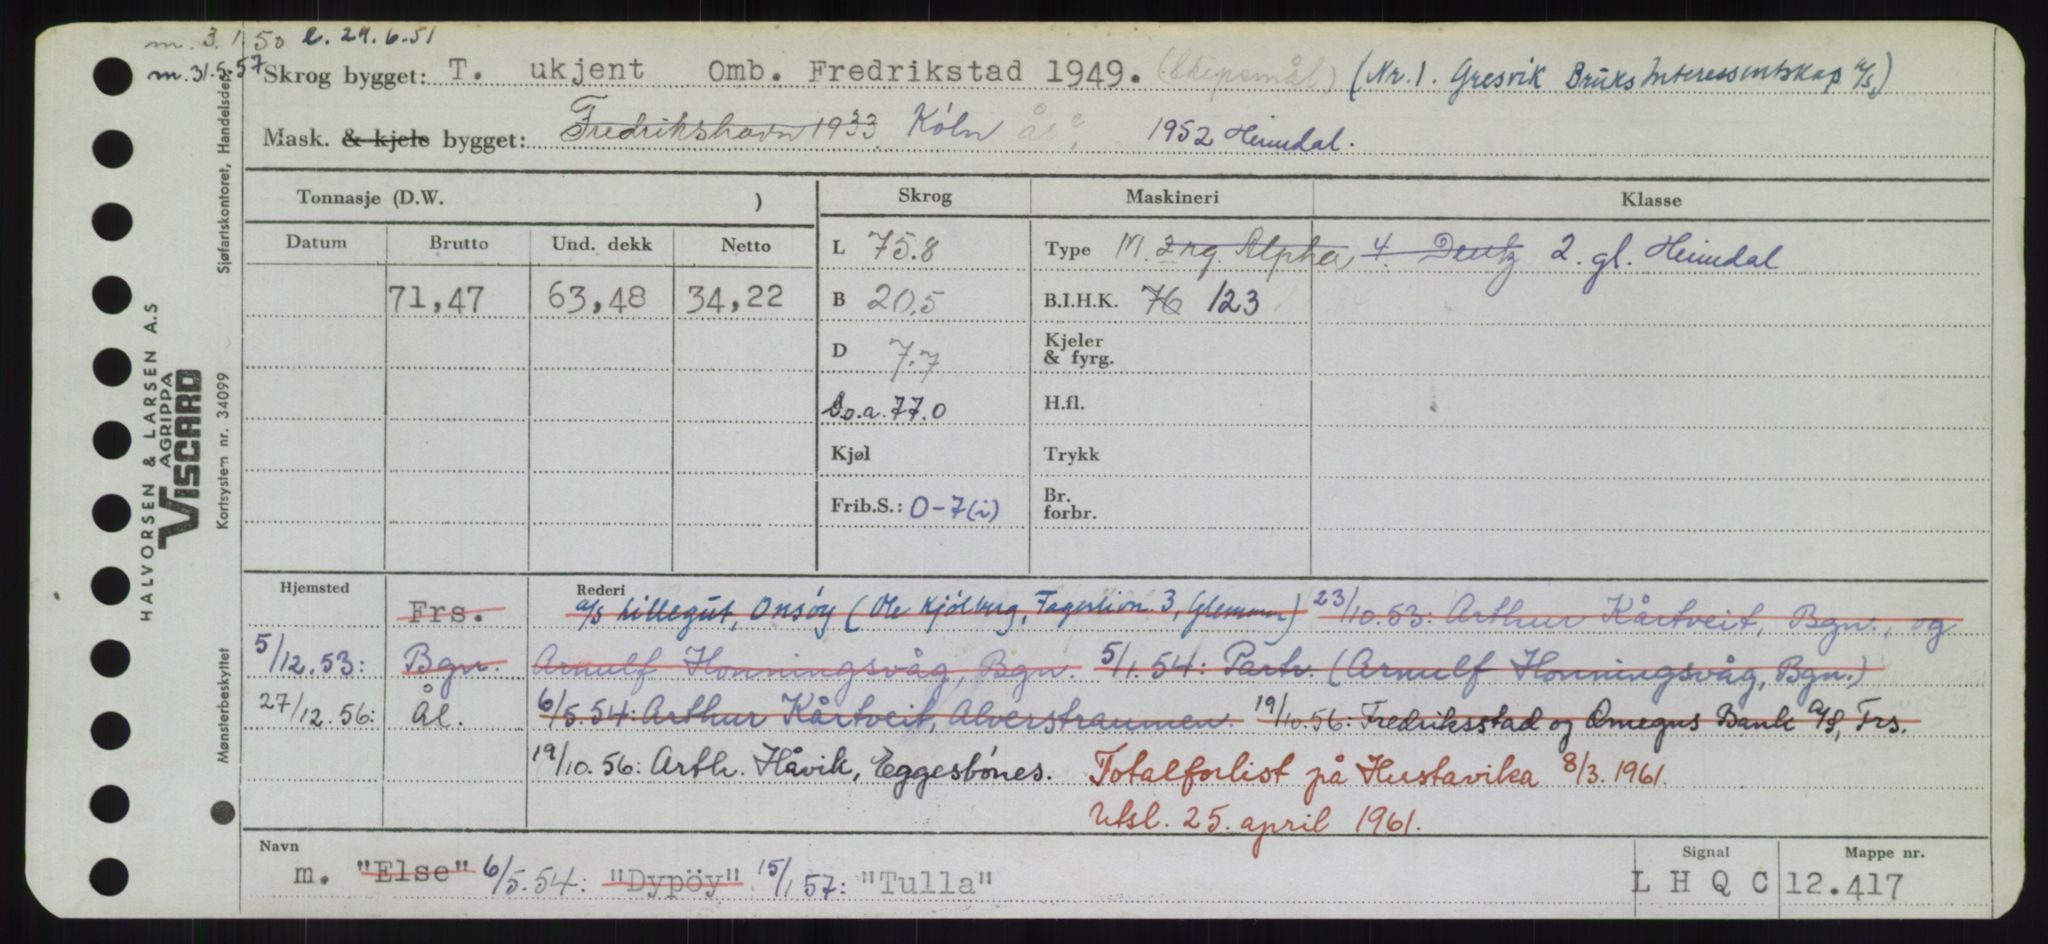 m. 3.1.50 e. 29.6.51
m. 31.5.57 Skrog bygget: T. ukjent Omb. Fredrikstad 1949. (Skipsmål) (Nr. 1. Gresvik Bruks Interessentskap A/S,)
Mask. & kjele bygget: Fredrikshavn 1933. Köln år?, 1952 Heimdal.
Tonnasje (D.W. ) Skrog Maskineri Klasse
Datum Brutto Und. dekk Netto L 75.8 Type M. 2 rg. Alpha, 4. Deutz 2. gl. Heimdal
71,47 63,48 34,22 B 20,5 B.I.H.K. 76 123
D 7.7 Kjeler & fyrg.
Lo.a. 77.0 H.fl.
Kjøl Trykk
Frib.S.: 0-7(i) Br. forbr.
Hjemsted Rederi
Frs. a/s Lillegut, Onsöy (Ole Kjölberg, Fagerlivn. 3, Glemmen) 23/10.53: Arthur Kårtveit, Bgn., og
5/12.53: Bgn. Arnulf Honningsvåg, Bgn. 5/1.54: Partr. (Arnulf Honningsvåg, Bgn.)
27/12.56: Ål. 6/5.54: Arthur Kårtveit, Alverstraumen 19/10.56: Fredriksstad og Omegns Bank A/S, Frs.
19/10.56: Arth. Håvik, Eggesbönes. Totalforlist på Hustavika 8/3.1961.
Utsl. 25. april 1961.
Navn Signal Mappe nr.
m. "Else" 6/5.54: "Dypöy" 15/1 57: "Tulla" L H Q C 12.417
HALVORSEN & LARSEN A.S
AGRIPPA
VISCARD
Sjøfartskontoret, Handelsdep.
Kortsystem nr. 34099
Mønsterbeskyttet